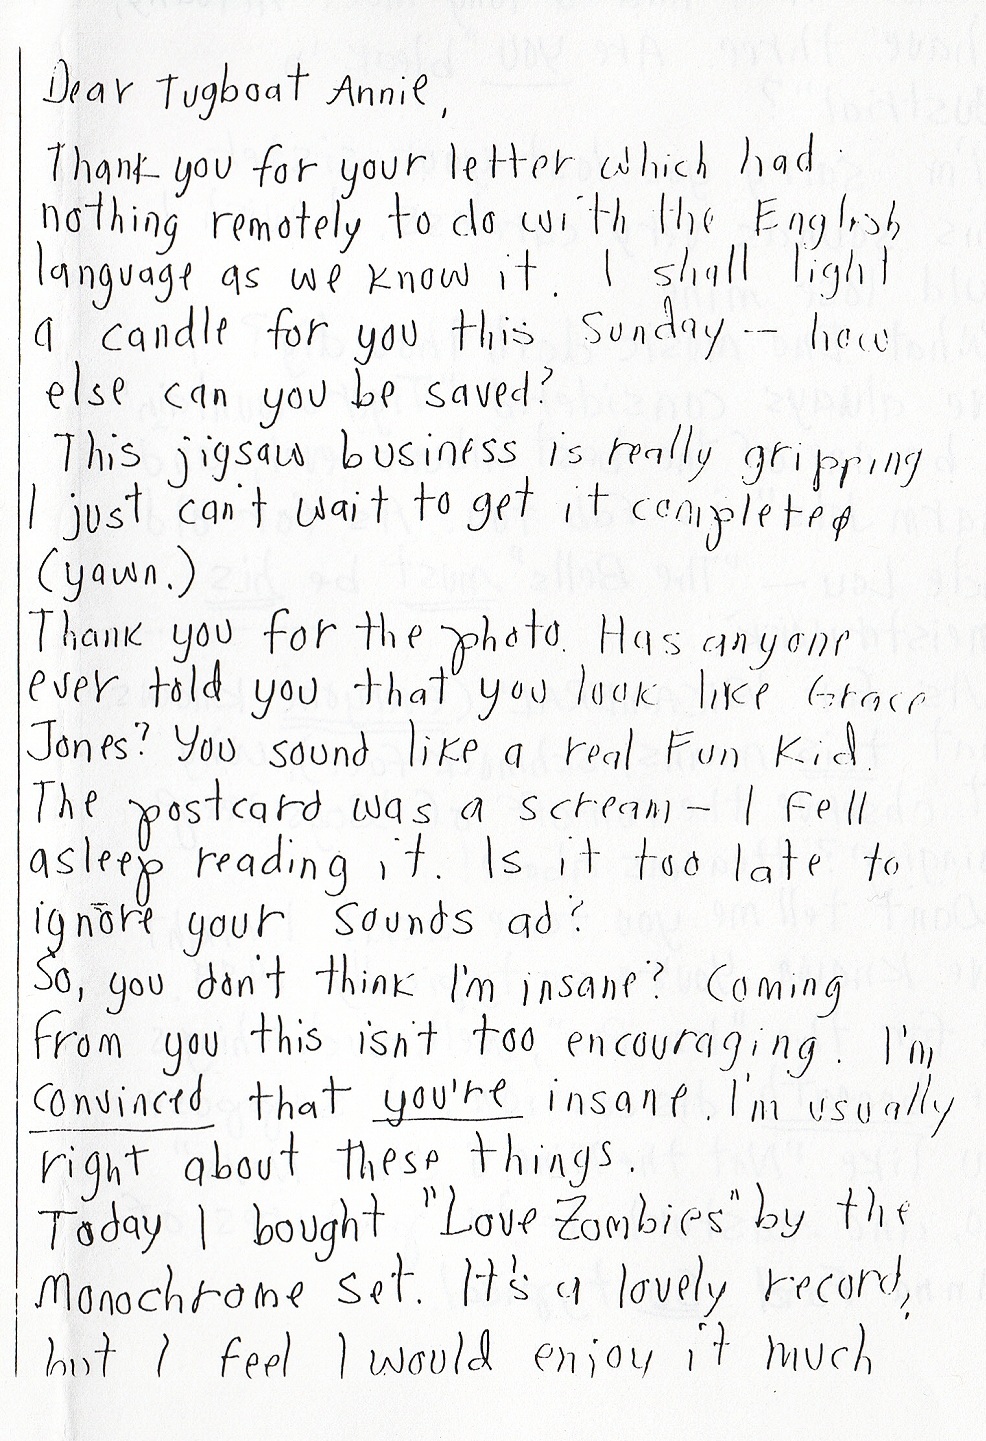 Dear Tugboat Annie,
Thank you for your letter which had
nothing remotely to do with the English
language as we know it. I shall light
a candle for you this Sunday — how
else can you be saved?
This jigsaw business is really gripping
I just can't wait to get it completed
(yawn.)
Thank you for the photo. Has anyone
ever told you that you look like Grace
Jones? You sound like a real Fun Kid.
The postcard was a scream — I fell
asleep reading it. Is it too late to
ignore your Sounds ad?
So, you don't think I'm insane? Coming
from you this isn't too encouraging. I'm
convinced that you're insane. I'm usually
right about these things.
Today I bought "Love Zombies" by the
Monochrome set. It's a lovely record,
but I feel I would enjoy it much